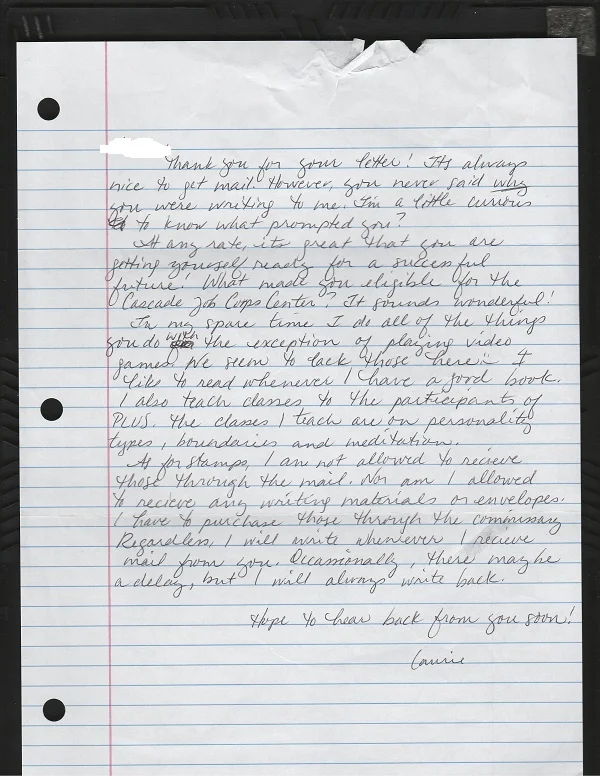 Thank you for your letter! Its always
nice to get mail. However, you never said why
you were writing to me. I'm a little curious
to know what prompted you?
At any rate, its great that you are
getting yourself ready for a successful
future. What made you eligible for the
Cascade Job Corps Center? It sounds wonderful!
In my spare time I do all of the things
you do with the exception of playing video
games. We seem to lack those here. I
like to read whenever I have a good book.
I also teach classes to the participants of
PLUS. The classes I teach are on personality
types, boundaries and meditation.
As for stamps, I am not allowed to recieve
those through the mail. Nor am I allowed
to recieve any writing materials or envelopes.
I have to purchase those through the commissary
Regardless, I will write whenever I recieve
mail from you. Occassionally, there may be
a delay, but I will always write back.
Hope to hear back from you soon!
Laurie